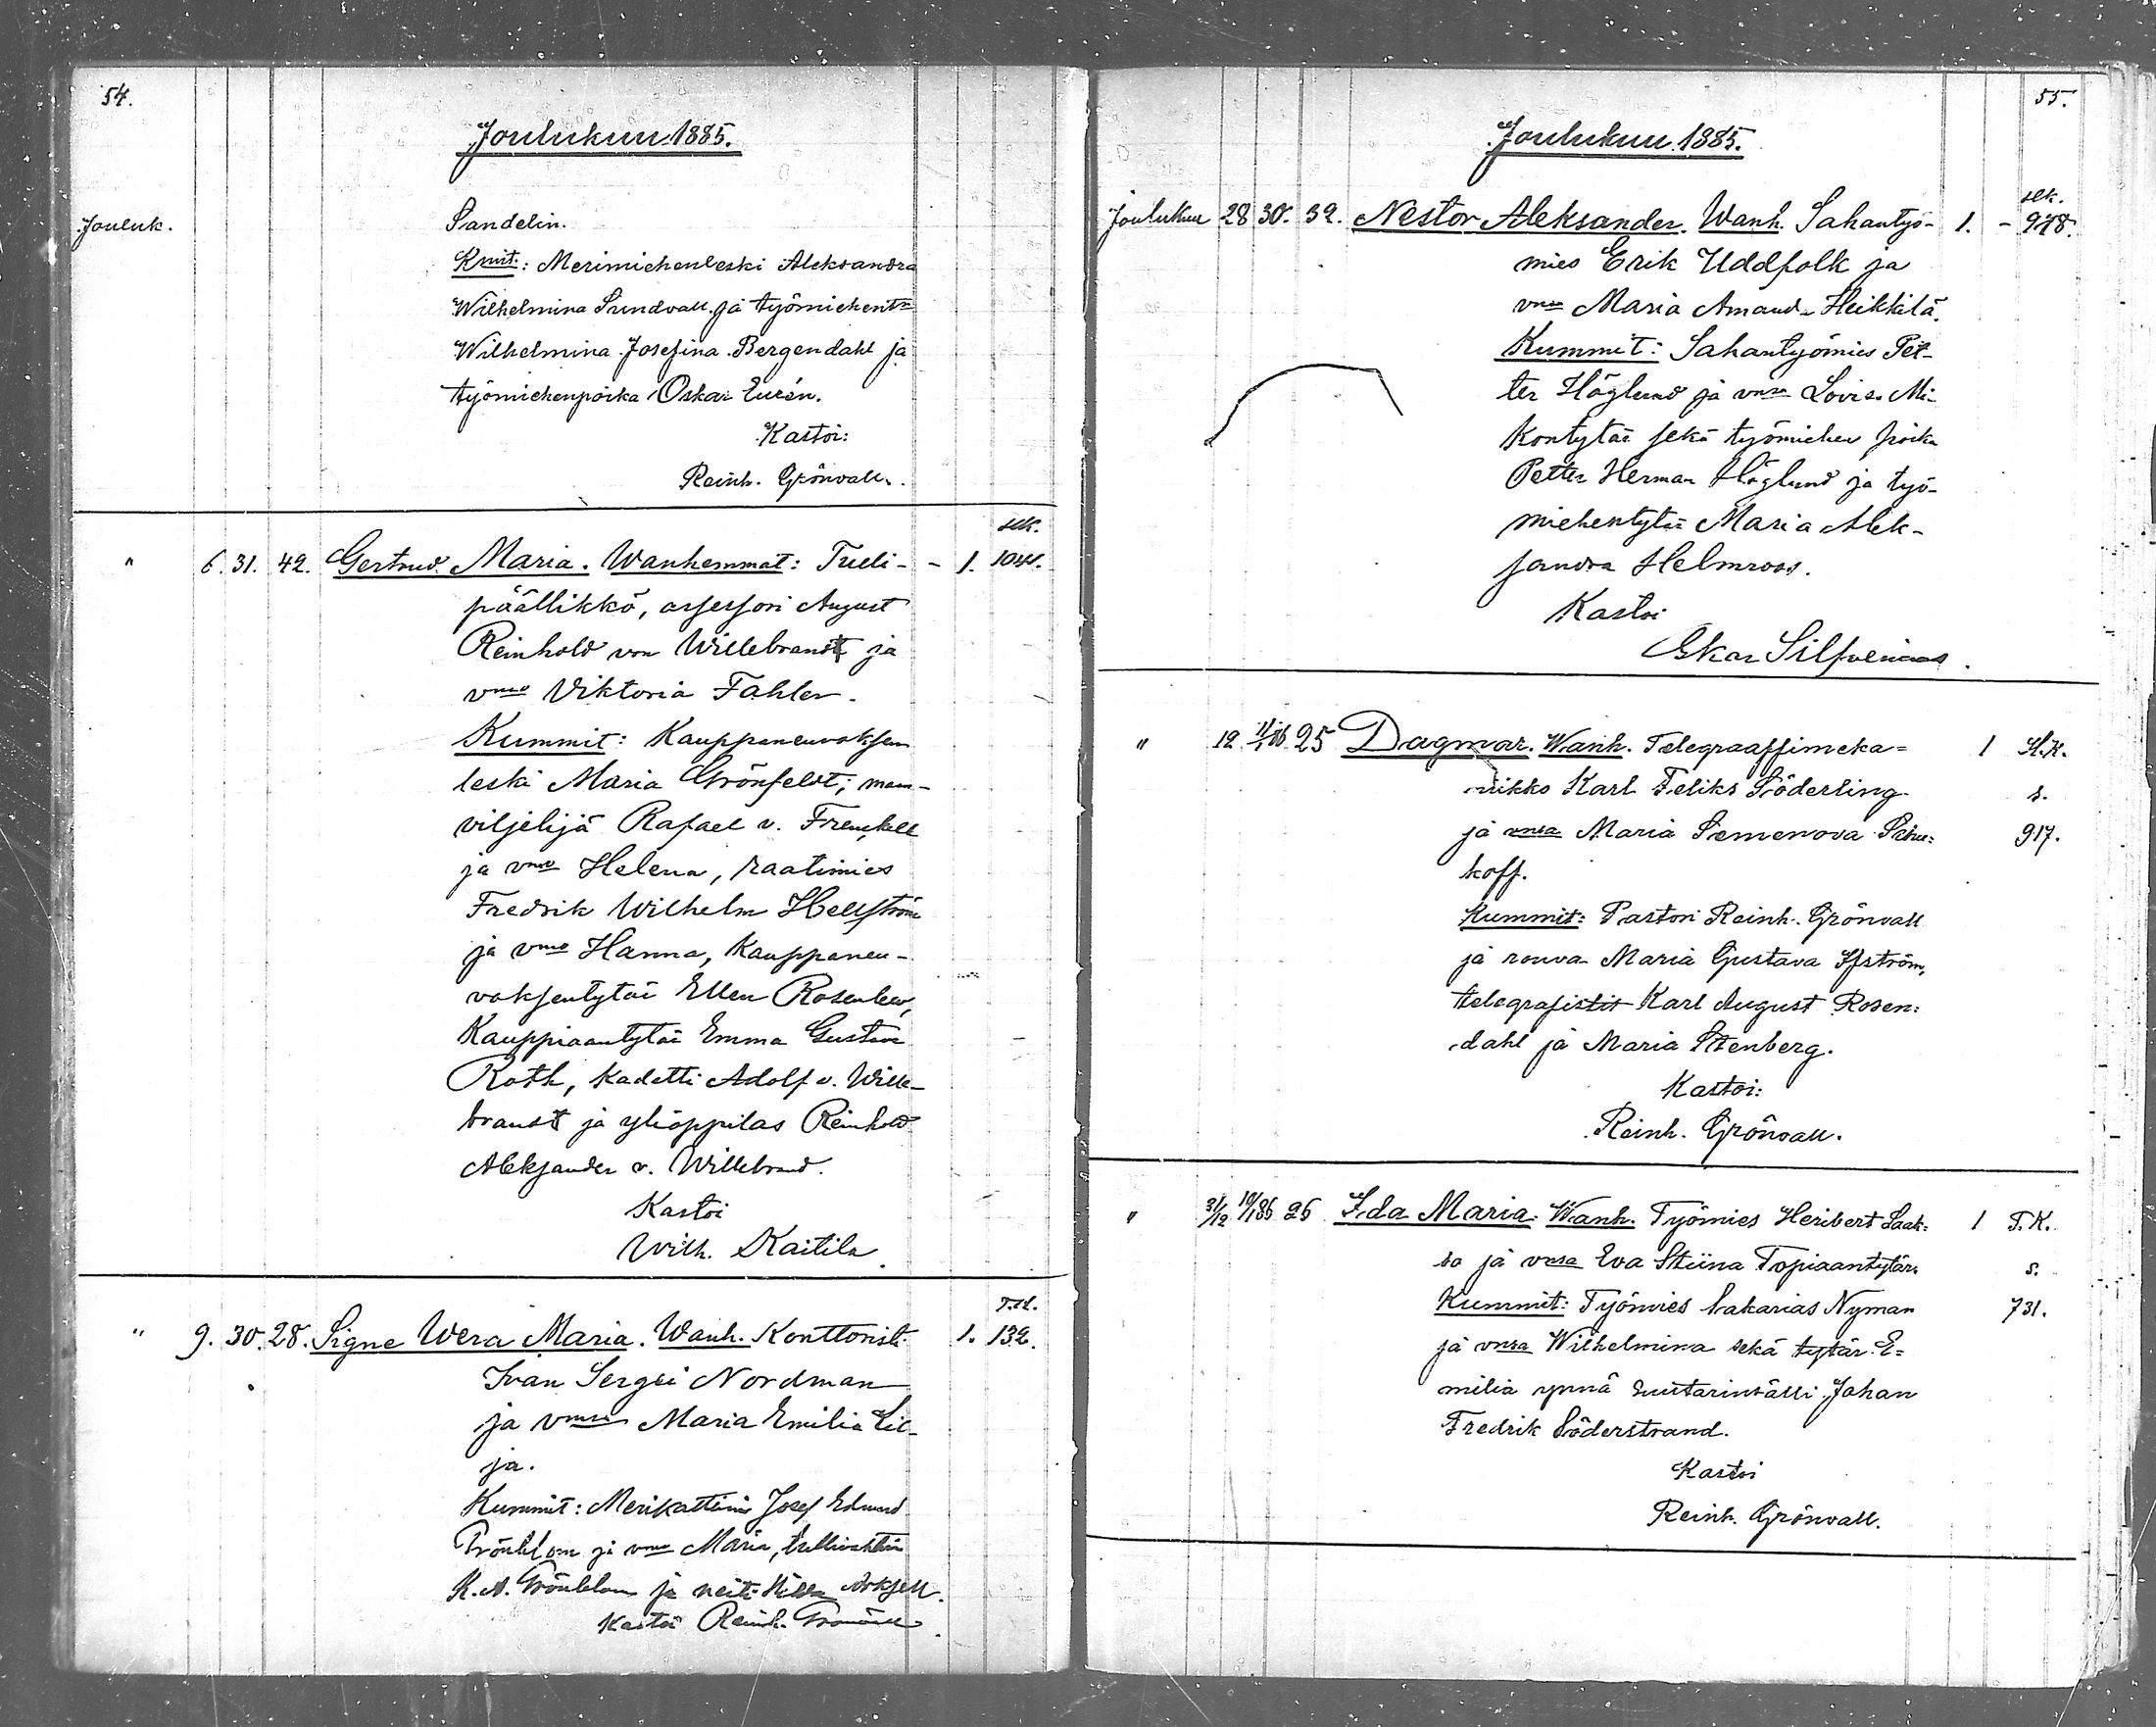 54.
Joulukuu 1885.
Jouluk.
Sandelin.
Kmit.: Merimiehenleski Aleksandra
Wilhelmina Sundvall ja työmiehent:
Wilhelmina Josefina Bergendahl ja
työmiehenpoika Oskar Eurén.
Kastoi:
Reinh. Grönvall.
" 6. 31. 42. Gertrud Maria. Wanhemmat: Tulli- - 1. 1041.
päällikkö, assessori August
Reinhold von Willebrandt ja
vmo Viktoria Fahler.
Kummit: Kauppaneuvoksen
leski Maria Grönfeldt; maan-
viljelijä Rafael v. Frenckell
ja vmo Helena, raatimies
Fredrik Wilhelm Hellström
ja vmo Hanna, Kauppaneu-
voksentytär Ellen Rosenlew,
Kauppiaantytär Emma Gustava
Roth, Kadetti Adolf v. Wille-
brandt ja ylioppilas Reinhold
Aleksander v. Willebrand.
Kastoi
Wilh. Kaitila
" 9. 30. 28. Signe Wera Maria. Wanh. Konttoristi 1. 132.
Ivan Sergei Nordman
ja vmsa Maria Emilia Lil-
ja.
Kummit: Merikapteini Josef Eduard
Grönblom ja vmo Maria,
K. A. Grönblom ja neiti
Kastoi Reinh. Grönvall
55.
Joulukuu 1885.
Joulukuu 28 30. 32. Nestor Aleksander. Wanh. Sahantyö- 1. - 978.
mies Erik Uddfolk ja
vmsa Maria Amanda Heikkilä.
Kummit: Sahantyömies Pet-
ter Höglund ja vmsa Lovisa Mi-
kontytär sekä työmiehen poika
Petter Herman Höglund ja työ-
miehentytär Maria Alek-
sandra Helmroos.
Kastoi
Oskar Silfvenius.
" 12 11/1 86 25 Dagmar. Wanh. Telegraaffimeka= 1 H.K.
nikko Karl Feliks Söderling s.
ja vmsa Maria Semenova 917.
koff.
Kummit: Pastori Reinh. Grönvall
ja rouva Maria Gustava Sjöström,
telegrafistit Karl August Rosen:
dahl ja Maria Stenberg.
Kastoi:
Reinh. Grönvall.
" 31/12 10/1 86 26 Ida Maria. Wanh. Työmies Heribert Laak: 1 T.K.
so ja vmsa Eva Stiina Topiaantytär. s.
Kummit: Työmies Sakarias Nyman 731.
ja vmsa Wilhelmina sekä tytär E=
milia ynnä suutarinsälli Johan
Fredrik Söderstrand.
Kastoi
Reinh. Grönvall.